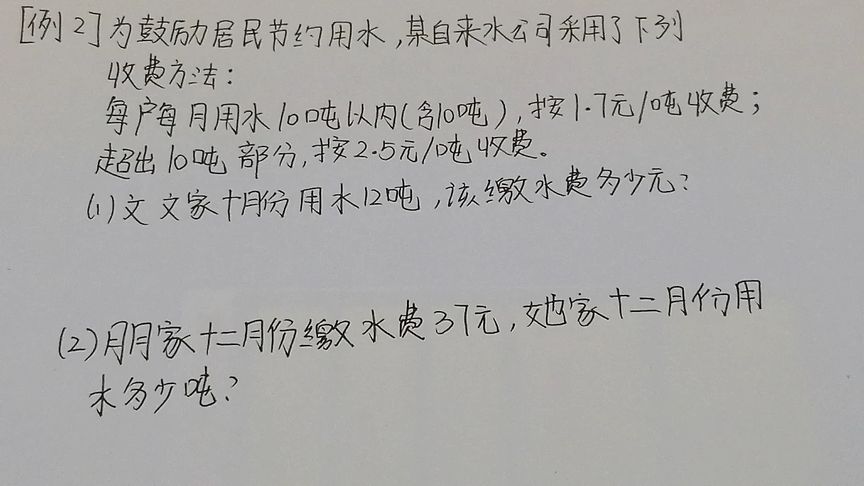 [例2]为鼓励居民节约用水,某自来水公司采用了下列
收费方法:
每户每月用水10吨以内(含10吨),按1.7元/吨收费;
超出10吨部分,按2.5元/吨收费。
(1)文文家十月份用水12吨,该缴水费多少元?
(2)月月家十二月份缴水费37元,她家十二月份用
水多少吨?